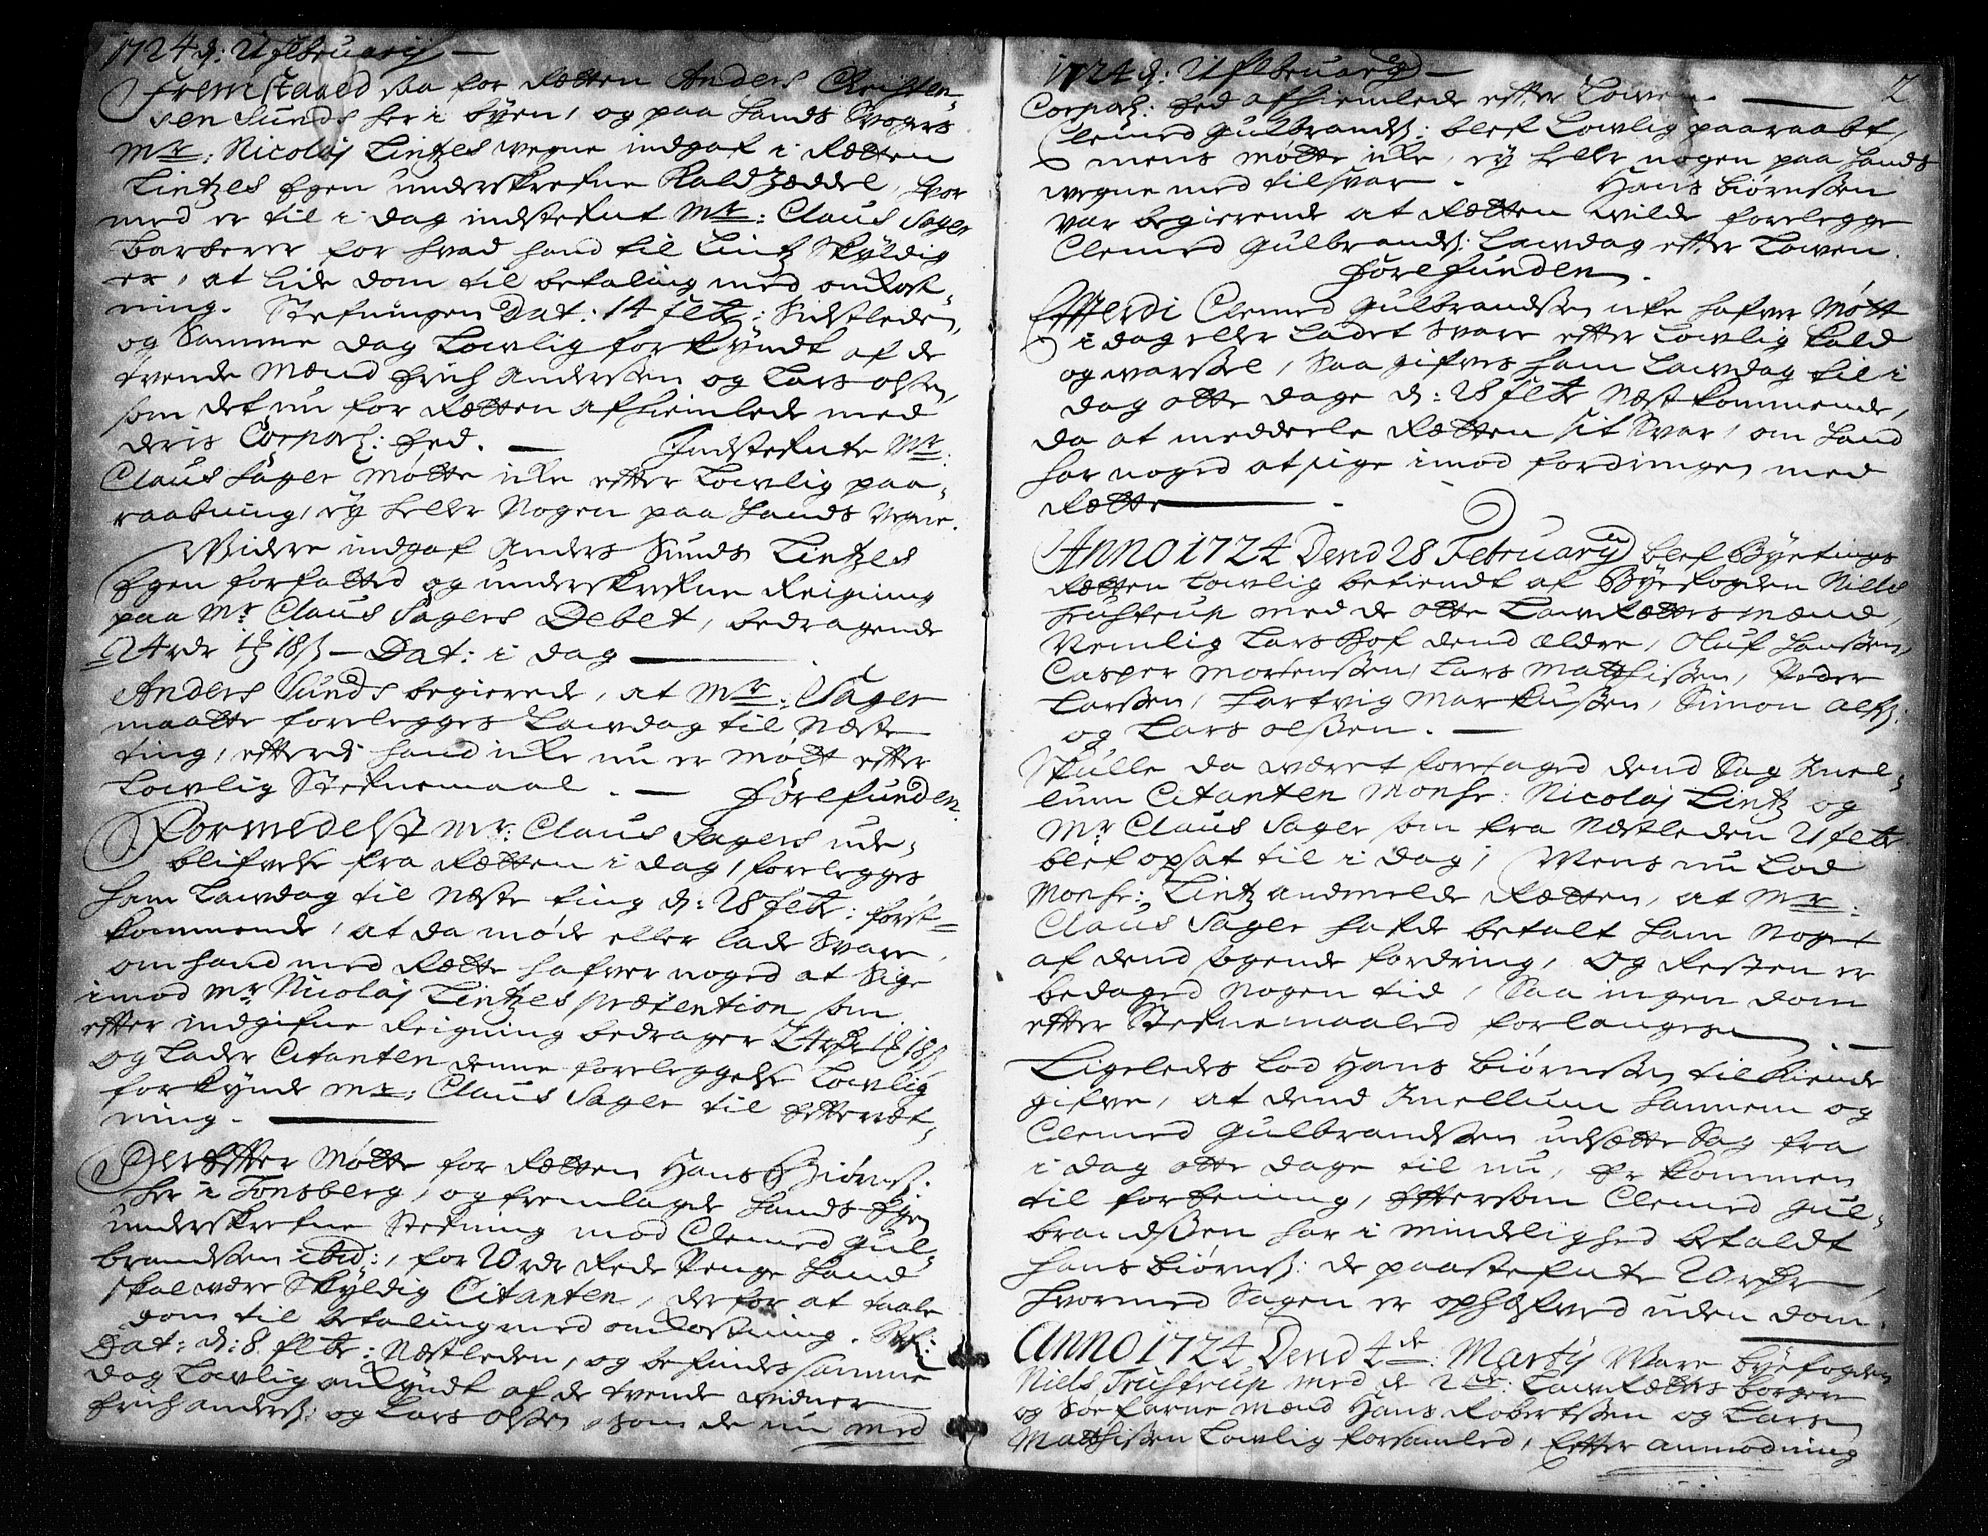 1724 d: 21 februarij —
Fremstaaed saa for Retten Anders Christen-
sen Sunds her i byen, og paa hands Svogers
Mr: Nicolaj Lintzes vegne indgaf i Retten
Lintzes Egen underskrefne Kald Zeddel, hvor
med er til i dag indstefnt Mr: Claus Sager
Barberer for hvad hand til Lintz Skyldig
er, at lide dom til betaling med omkost-
ning. Stefningen Dat: 14 febr: Sidstleden,
og Samme dag Lovlig forkyndt af de
tvende Mænd Erich Anderssen og Lars olsen,
som det nu for Retten afhiemlede med
deris Corporl: Eed. — Indstefnte Mr:
Claus Sager Møtte icke efter Lovlig paa-
raabning, ey heller Nogen paa hands Vegne.
Widere indgaf Anders Sunds Lintzes
Egen forfatted og underskrefne Reigning
paa Mr Claus Sagers Debet, bedragende
24 rdr 1 ₰ 18 s — Dat: i dag —
Anders Sunds begierede, at Mr: Sager
maatte forelegges Lavdag til Neste
ting, efterdi hand icke nu er Mødt efter
Lovlig Stefnemaal. — Forefunden.
Formedelst Mr: Claus Sagers ude-
blifvelse fra Retten i dag, forelegges
ham Laudag til Neste ting d: 28 febr: först-
kommende, at da møde eller lade Svare,
om hand med Rette hafver noged at Sige
imod Mr Nicolaj Lintzes prætention som
efter indgifne Reigning bedrager 24 rdr 1 ₰ 18 s
og Lader Citanten denne foreleggelse Lovlig
forkynde Mr: Claus Sager til Efterret-
ning. —
Derefter Møtte for Retten Hans Biørns:
her i Tonsberg, og fremlagde hands Egen
underskrefne Stefning mod Clemed Gul-
brandssen ibid:, for 20 rdr Rede Penge hand
skal være Skyldig Citanten, derfor at taale
dom til betaling med omkostning. Stef:
Dat: d: 8 febr: Nestleden, og befindes samme
dag Lovlig ankyndt af de tvende vidner
Erich anders: og Lars olsen, som de nu med
1724 d: 21 februarij — 2
Corporl: Eed afhiemlede efter Lowen. —
Clemed Gulbrands: blef Lovlig paaraabt,
mens møtte icke, ey heller nogen paa hands
vegne med tilsvar. Hans Biørnssen
var begierende at Retten wilde forelegge
Clemed Gulbrands: Lawdag efter Lowen.
Forefunden.
Efterdi Clemed Gulbrandssen icke hafver Møtt
i dag eller Ladet Svare efter Lovlig kald
og warssel, Saa gifves ham Lawdag til i
dag otte dage d: 28 febr Nest kommende,
da at meddeele Retten sit Svar, om hand
har noged at sige imod fordringen med
Rette —
Anno 1724 Dend 28 Februarij blef Byetings
Retten Lovlig betiendt af Byefogden Niels
Trustrup med de otte Lawrettes mænd,
Nemlig Lars Hof dend ældre, Oluf hanssen,
Casper Mortenssen, Lars Matthissen, Peder
Larssen, Hartvig Markussen, Simon alfs:
og Lars olssen. —
Skulle da været foretaged dend Sag Imel-
lum Citanten Monsr: Nicolaj Lintz og
Mr Claus Sager som fra Nestleden 21 febr
blef opsat til i dag; Mens nu Lod
Monsr: Lintz andmelde Retten, at Mr:
Claus Sager hafde betalt ham Noget
af dend søgende fordring, og Resten er
bedaged Nogen tid, Saa ingen dom
efter Stefnemaaled forlanges —
Ligeledes Lod Hans Biørnssen tilkiende
gifve, at dend Imellum hannem og
Clemed Gulbrandssen udsætte Sag fra
i dag otte dage til nu, er kommen
til forEening, Eftersom Clemed Gul-
brandssen har i mindelighed betaldt
Hans Biørns: de paastefnte 20 rdr,
hvormed Sagen er ophæfved uden dom.
Anno 1724 Dend 2de: Martij Ware byefogden
Niels Trustrup med de 2de: Lawrettes borgere
og Soefarne mænd Hans Robertssen og Lars
Matthissen Lovlig forsamled, Efter anmodning